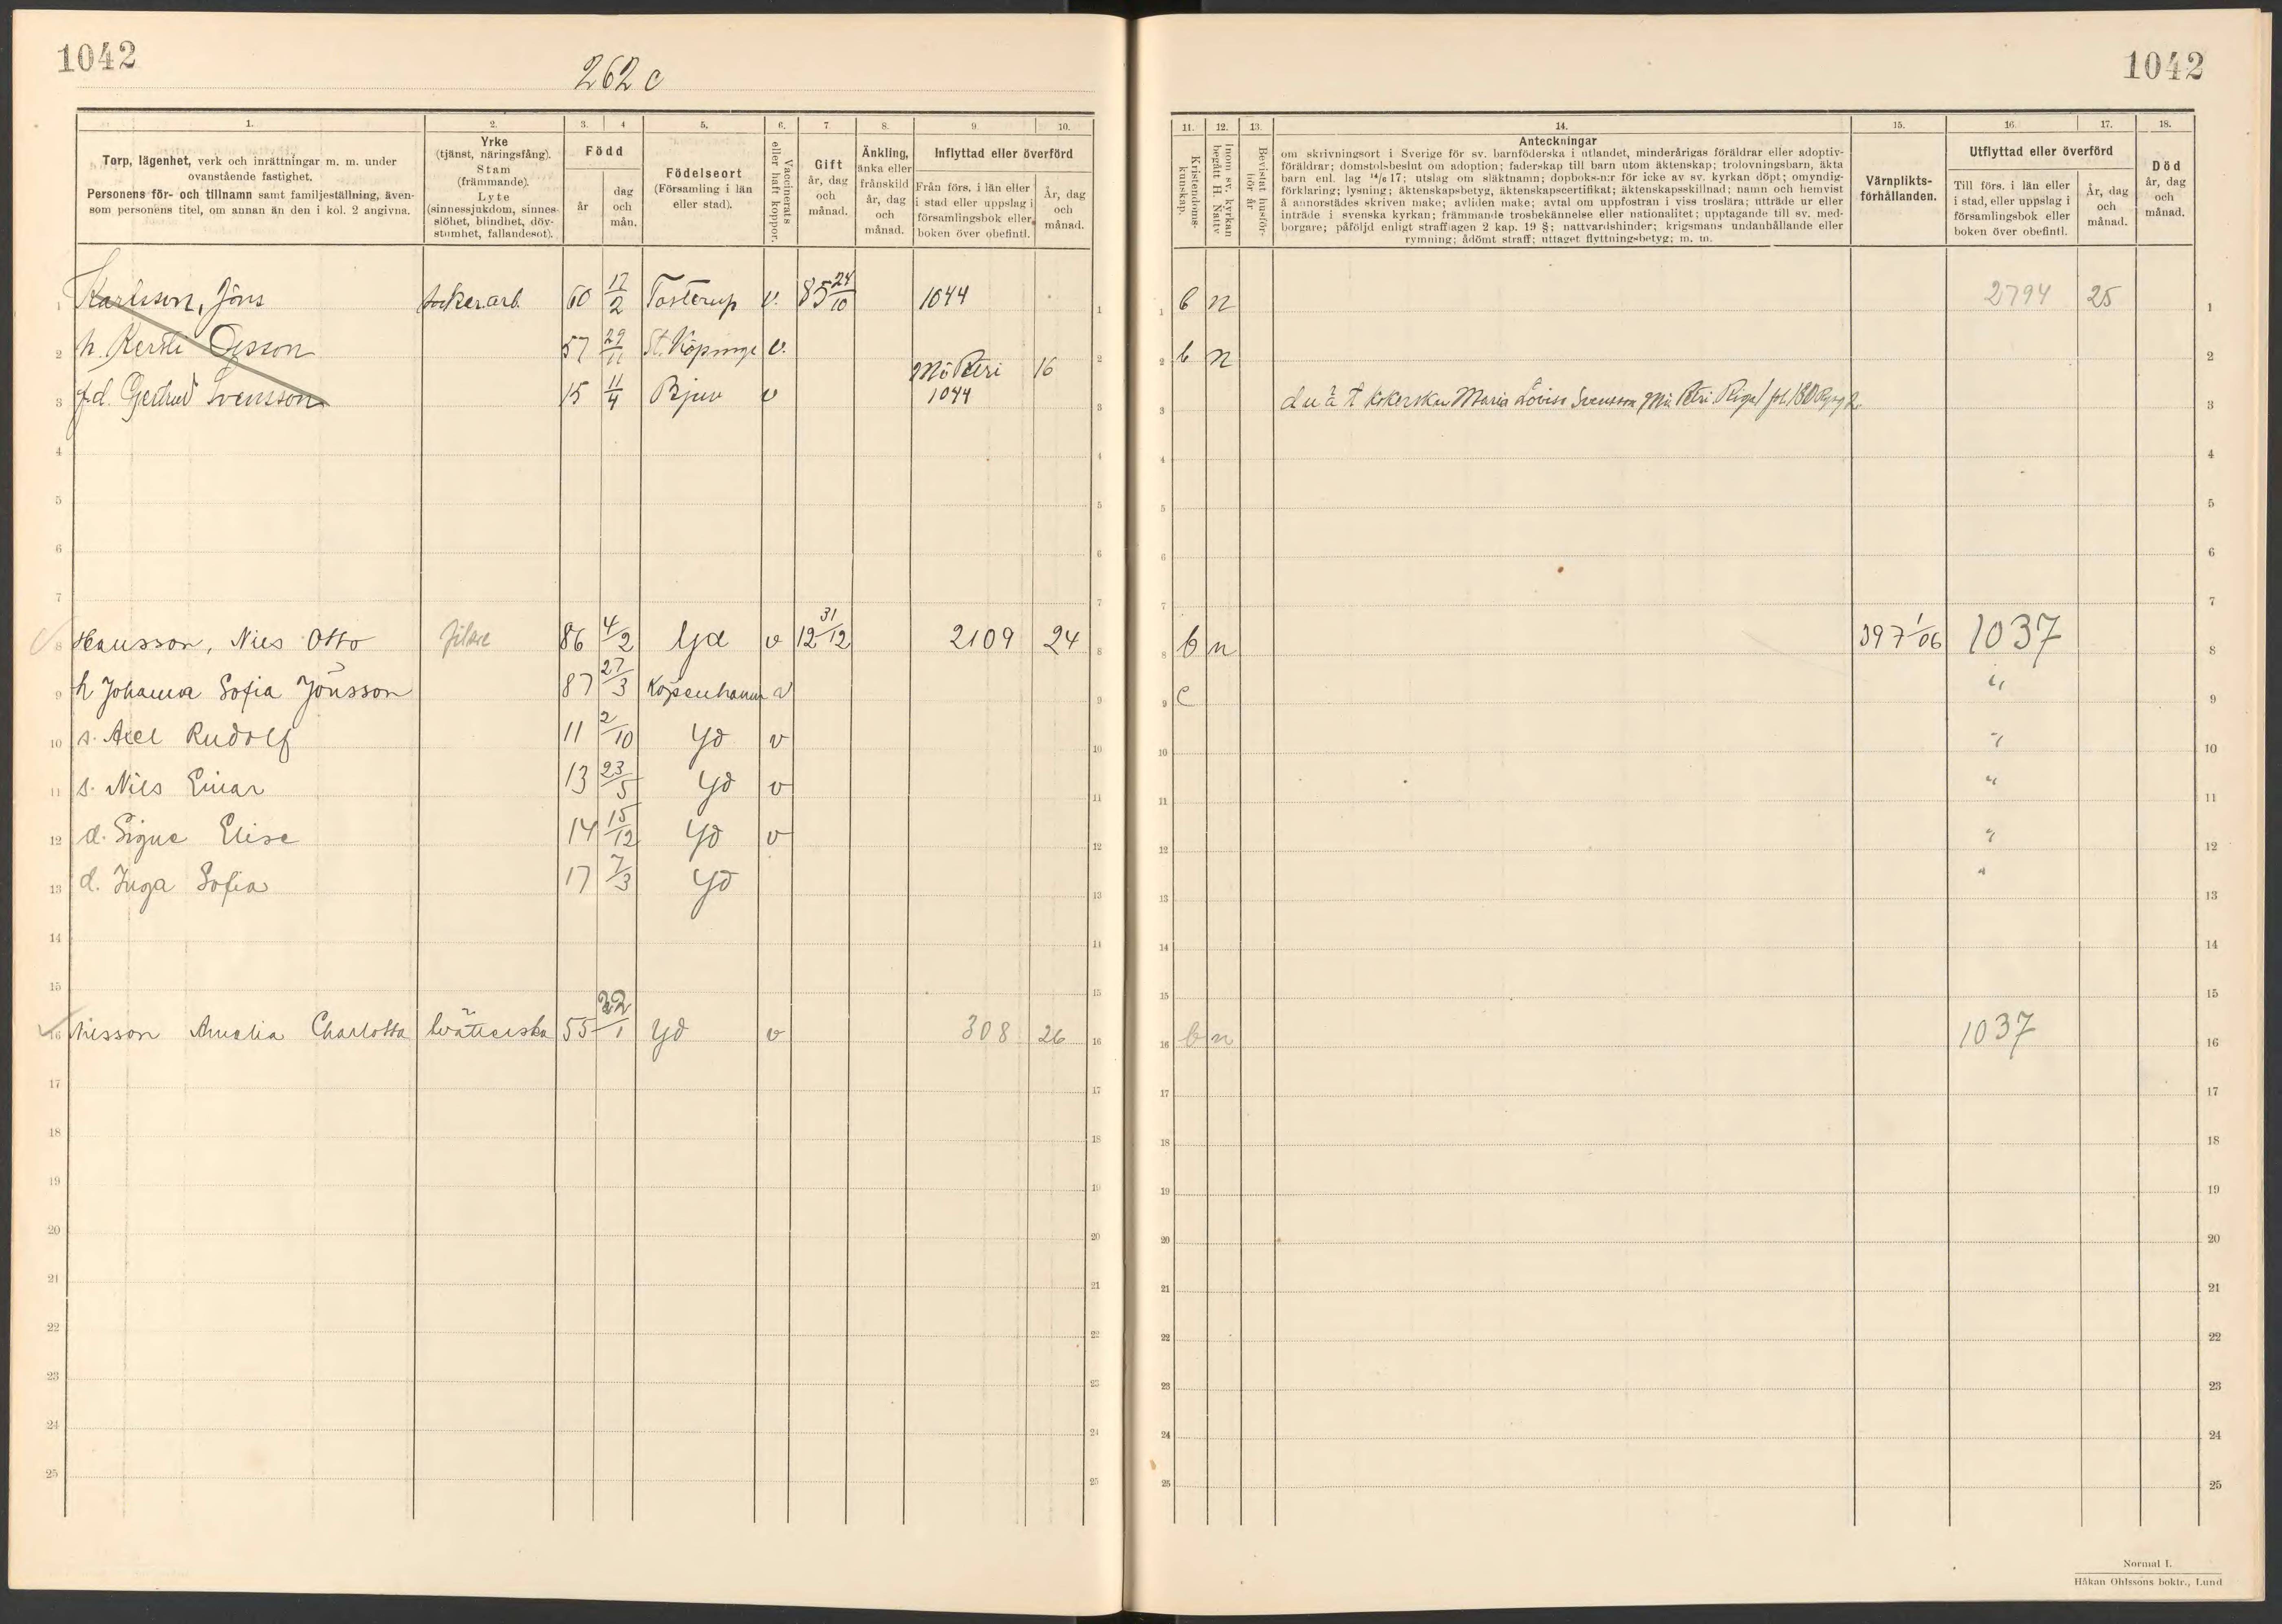 1042
262 c
1042
1. 2. 3. 4 5. 6. 7 8. 9 10.
Torp, lägenhet, verk och inrättningar m. m. under
ovanstående fastighet.
Personens för- och tillnamn samt familjeställning, även-
som personens titel, om annan än den i kol. 2 angivna.
Yrke
(tjänst, näringsfång).
Stam
(främmande).
Lyte
(sinnessjukdom, sinnes-
slöhet, blindhet, döv-
stumhet, fallandesot).
Född
år
dag
och
mån.
Födelseort
(Församling i län
eller stad).
Vaccinerats
eller haft koppor.
Gift
år, dag
och
månad.
Änkling,
änka eller
frånskild
år, dag
och
månad.
Inflyttad eller överförd
Från förs. i län eller
i stad eller uppslag i
församlingsbok eller
boken över obefintl.
År, dag
och
månad.
11. 12. 13. 14. 15. 16. 17. 18.
Kristendoms-
kunskap.
Inom sv. kyrkan
begått H. Nattv
Bevistat husför-
hör år
Anteckningar
om skrivningsort i Sverige för sv. barnföderska i utlandet, minderårigas föräldrar eller adoptiv-
föräldrar; domstolsbeslut om adoption; faderskap till barn utom äktenskap; trolovningsbarn, äkta
barn enl. lag 14/6 17; utslag om släktnamn; dopboks-n:r för icke av sv. kyrkan döpt; omyndig-
förklaring; lysning; äktenskapsbetyg, äktenskapscertifikat; äktenskapsskillnad; namn och hemvist
å annorstädes skriven make; avliden make; avtal om uppfostran i viss troslära; utträde ur eller
inträde i svenska kyrkan; främmande trosbekännelse eller nationalitet; upptagande till sv. med-
borgare; påföljd enligt strafflagen 2 kap. 19 §; nattvardshinder; krigsmans undanhållande eller
rymning; ådömt straff; uttaget flyttningsbetyg; m. m.
Värnplikts-
förhållanden.
Utflyttad eller överförd
Till förs. i län eller
i stad, eller uppslag i
församlingsbok eller
boken över obefintl.
År, dag
och
månad.
Död
år, dag
och
månad.
1 Karlsson, Jöns sockerarb. 60 12/2 Tosterup v. 85 24/10 1044 1 1 b n 2794 25 1
2 h. Kersti Olsson 57 29/11 St. Köpinge v. 2 2 b n 2
Mö Petri 16
3 fd. Gertrud Svensson 15 11/4 Bjuv v 1044 3 3 d u ä t kokerskan Maria Lovisa Svensson Mö Petri 3
4 4 4 4
5 5 5 5
6 6 6 6
7 7 7 7
8 Hansson, Nils Otto filare 86 4/2 Yd v 12 31/12 2109 24 8 8 b n 397 1/06 1037 8
9 h Johanna Sofia Jönsson 87 27/3 Köpenhamn v 9 9 c " 9
10 s. Axel Rudolf 11 2/10 Yd v 10 10 " 10
11 s. Nils Einar 13 23/5 Yd v 11 11 " 11
12 d. Signe Elise 14 15/12 Yd v 12 12 " 12
13 d. Inga Sofia 17 7/3 Yd 13 13 " 13
14 14 14 14
15 15 15 15
16 Nilsson Amalia Charlotta tvätterska 55 22/1 Yd v 308 26 16 16 b n 1037 16
17 17 17 17
18 18 18 18
19 19 19 19
20 20 20 20
21 21 21 21
22 22 22 22
23 23 23 23
24 24 24 24
25 25 25 25
Normal I.
Håkan Ohlssons boktr., Lund